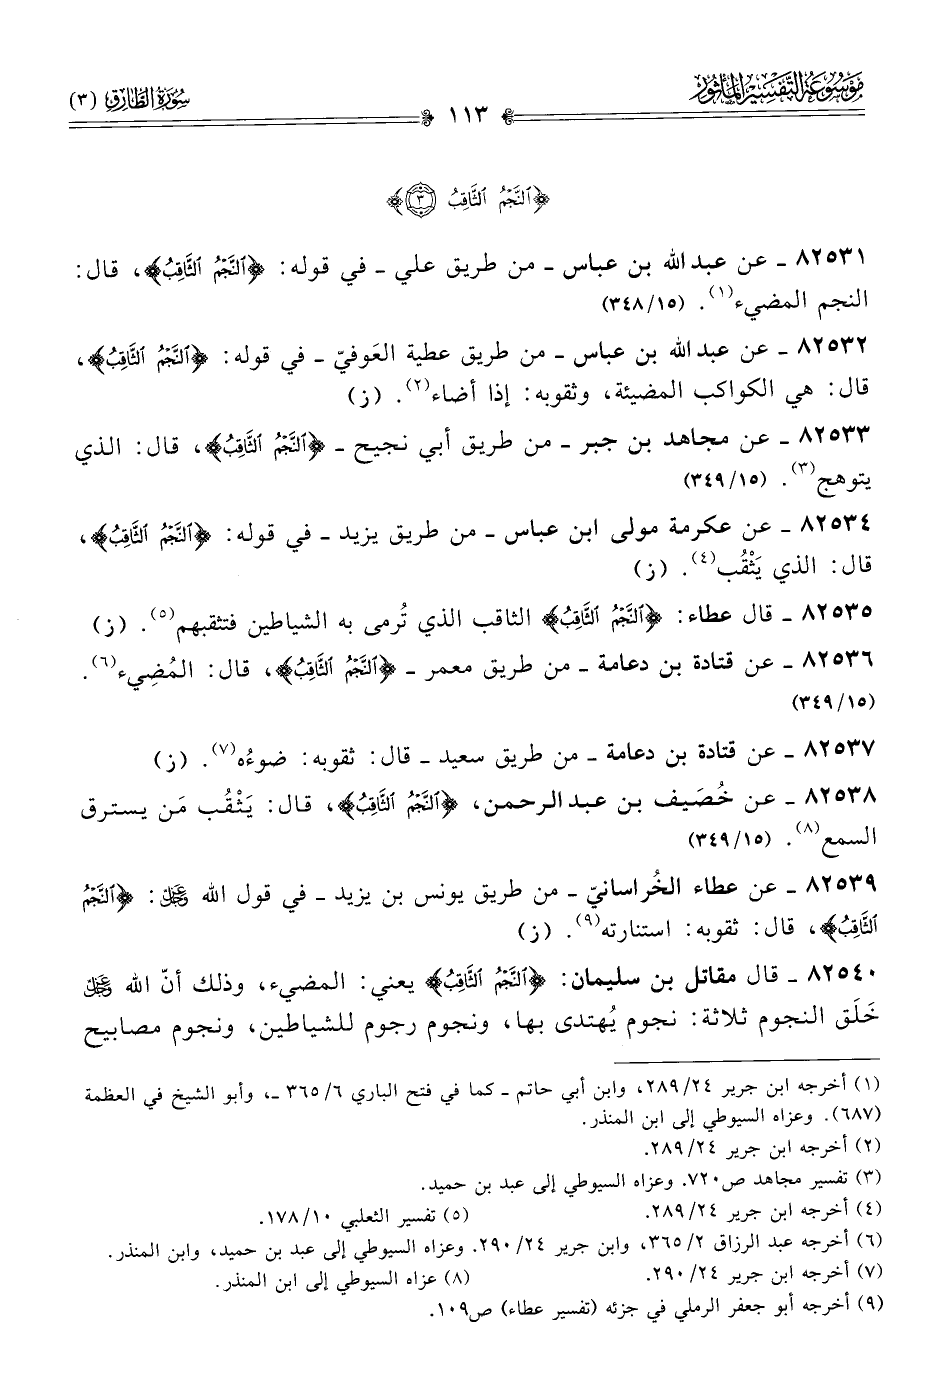 موسوعة التفسير المأثور
١١٣
سورة الطارق (٣)
﴿ٱلنَّجْمُ ٱلثَّاقِبُ ٣﴾
٨٢٥٣١ ـ عن عبد الله بن عباس ـ من طريق علي ـ في قوله: ﴿ٱلنَّجْمُ ٱلثَّاقِبُ﴾، قال:
النجم المضيء(١). (٣٤٨/١٥)
٨٢٥٣٢ ـ عن عبد الله بن عباس ـ من طريق عطية العَوفيّ ـ في قوله: ﴿ٱلنَّجْمُ ٱلثَّاقِبُ﴾،
قال: هي الكواكب المضيئة، وثقوبه: إذا أضاء(٢). (ز)
٨٢٥٣٣ ـ عن مجاهد بن جبر ـ من طريق أبي نجيح ـ ﴿ٱلنَّجْمُ ٱلثَّاقِبُ﴾، قال: الذي
يتوهج(٣). (٣٤٩/١٥)
٨٢٥٣٤ ـ عن عكرمة مولى ابن عباس ـ من طريق يزيد ـ في قوله: ﴿ٱلنَّجْمُ ٱلثَّاقِبُ﴾،
قال: الذي يَثْقُب(٤). (ز)
٨٢٥٣٥ ـ قال عطاء: ﴿ٱلنَّجْمُ ٱلثَّاقِبُ﴾ الثاقب الذي تُرمى به الشياطين فتثقبهم(٥). (ز)
٨٢٥٣٦ ـ عن قتادة بن دعامة ـ من طريق معمر ـ ﴿ٱلنَّجْمُ ٱلثَّاقِبُ﴾، قال: المُضِيء(٦).
(٣٤٩/١٥)
٨٢٥٣٧ ـ عن قتادة بن دعامة ـ من طريق سعيد ـ قال: ثقوبه: ضوءُه(٧). (ز)
٨٢٥٣٨ ـ عن خُصَيف بن عبد الرحمن، ﴿ٱلنَّجْمُ ٱلثَّاقِبُ﴾، قال: يَثْقُب مَن يسترق
السمع(٨). (٣٤٩/١٥)
٨٢٥٣٩ ـ عن عطاء الخُراسانيّ ـ من طريق يونس بن يزيد ـ في قول الله ﷿: ﴿ٱلنَّجْمُ
ٱلثَّاقِبُ﴾، قال: ثقوبه: استنارته(٩). (ز)
٨٢٥٤٠ ـ قال مقاتل بن سليمان: ﴿ٱلنَّجْمُ ٱلثَّاقِبُ﴾ يعني: المضيء، وذلك أنّ الله ﷿
خَلَق النجوم ثلاثة: نجوم يُهتدى بها، ونجوم رجوم للشياطين، ونجوم مصابيح
(١) أخرجه ابن جرير ٢٨٩/٢٤، وابن أبي حاتم ـ كما في فتح الباري ٣٦٥/٦ ـ، وأبو الشيخ في العظمة
(٦٨٧). وعزاه السيوطي إلى ابن المنذر.
(٢) أخرجه ابن جرير ٢٨٩/٢٤.
(٣) تفسير مجاهد ص٧٢٠. وعزاه السيوطي إلى عبد بن حميد.
(٤) أخرجه ابن جرير ٢٨٩/٢٤. (٥) تفسير الثعلبي ١٧٨/١٠.
(٦) أخرجه عبد الرزاق ٣٦٥/٢، وابن جرير ٢٩٠/٢٤. وعزاه السيوطي إلى عبد بن حميد، وابن المنذر.
(٧) أخرجه ابن جرير ٢٩٠/٢٤. (٨) عزاه السيوطي إلى ابن المنذر.
(٩) أخرجه أبو جعفر الرملي في جزئه (تفسير عطاء) ص١٠٩.